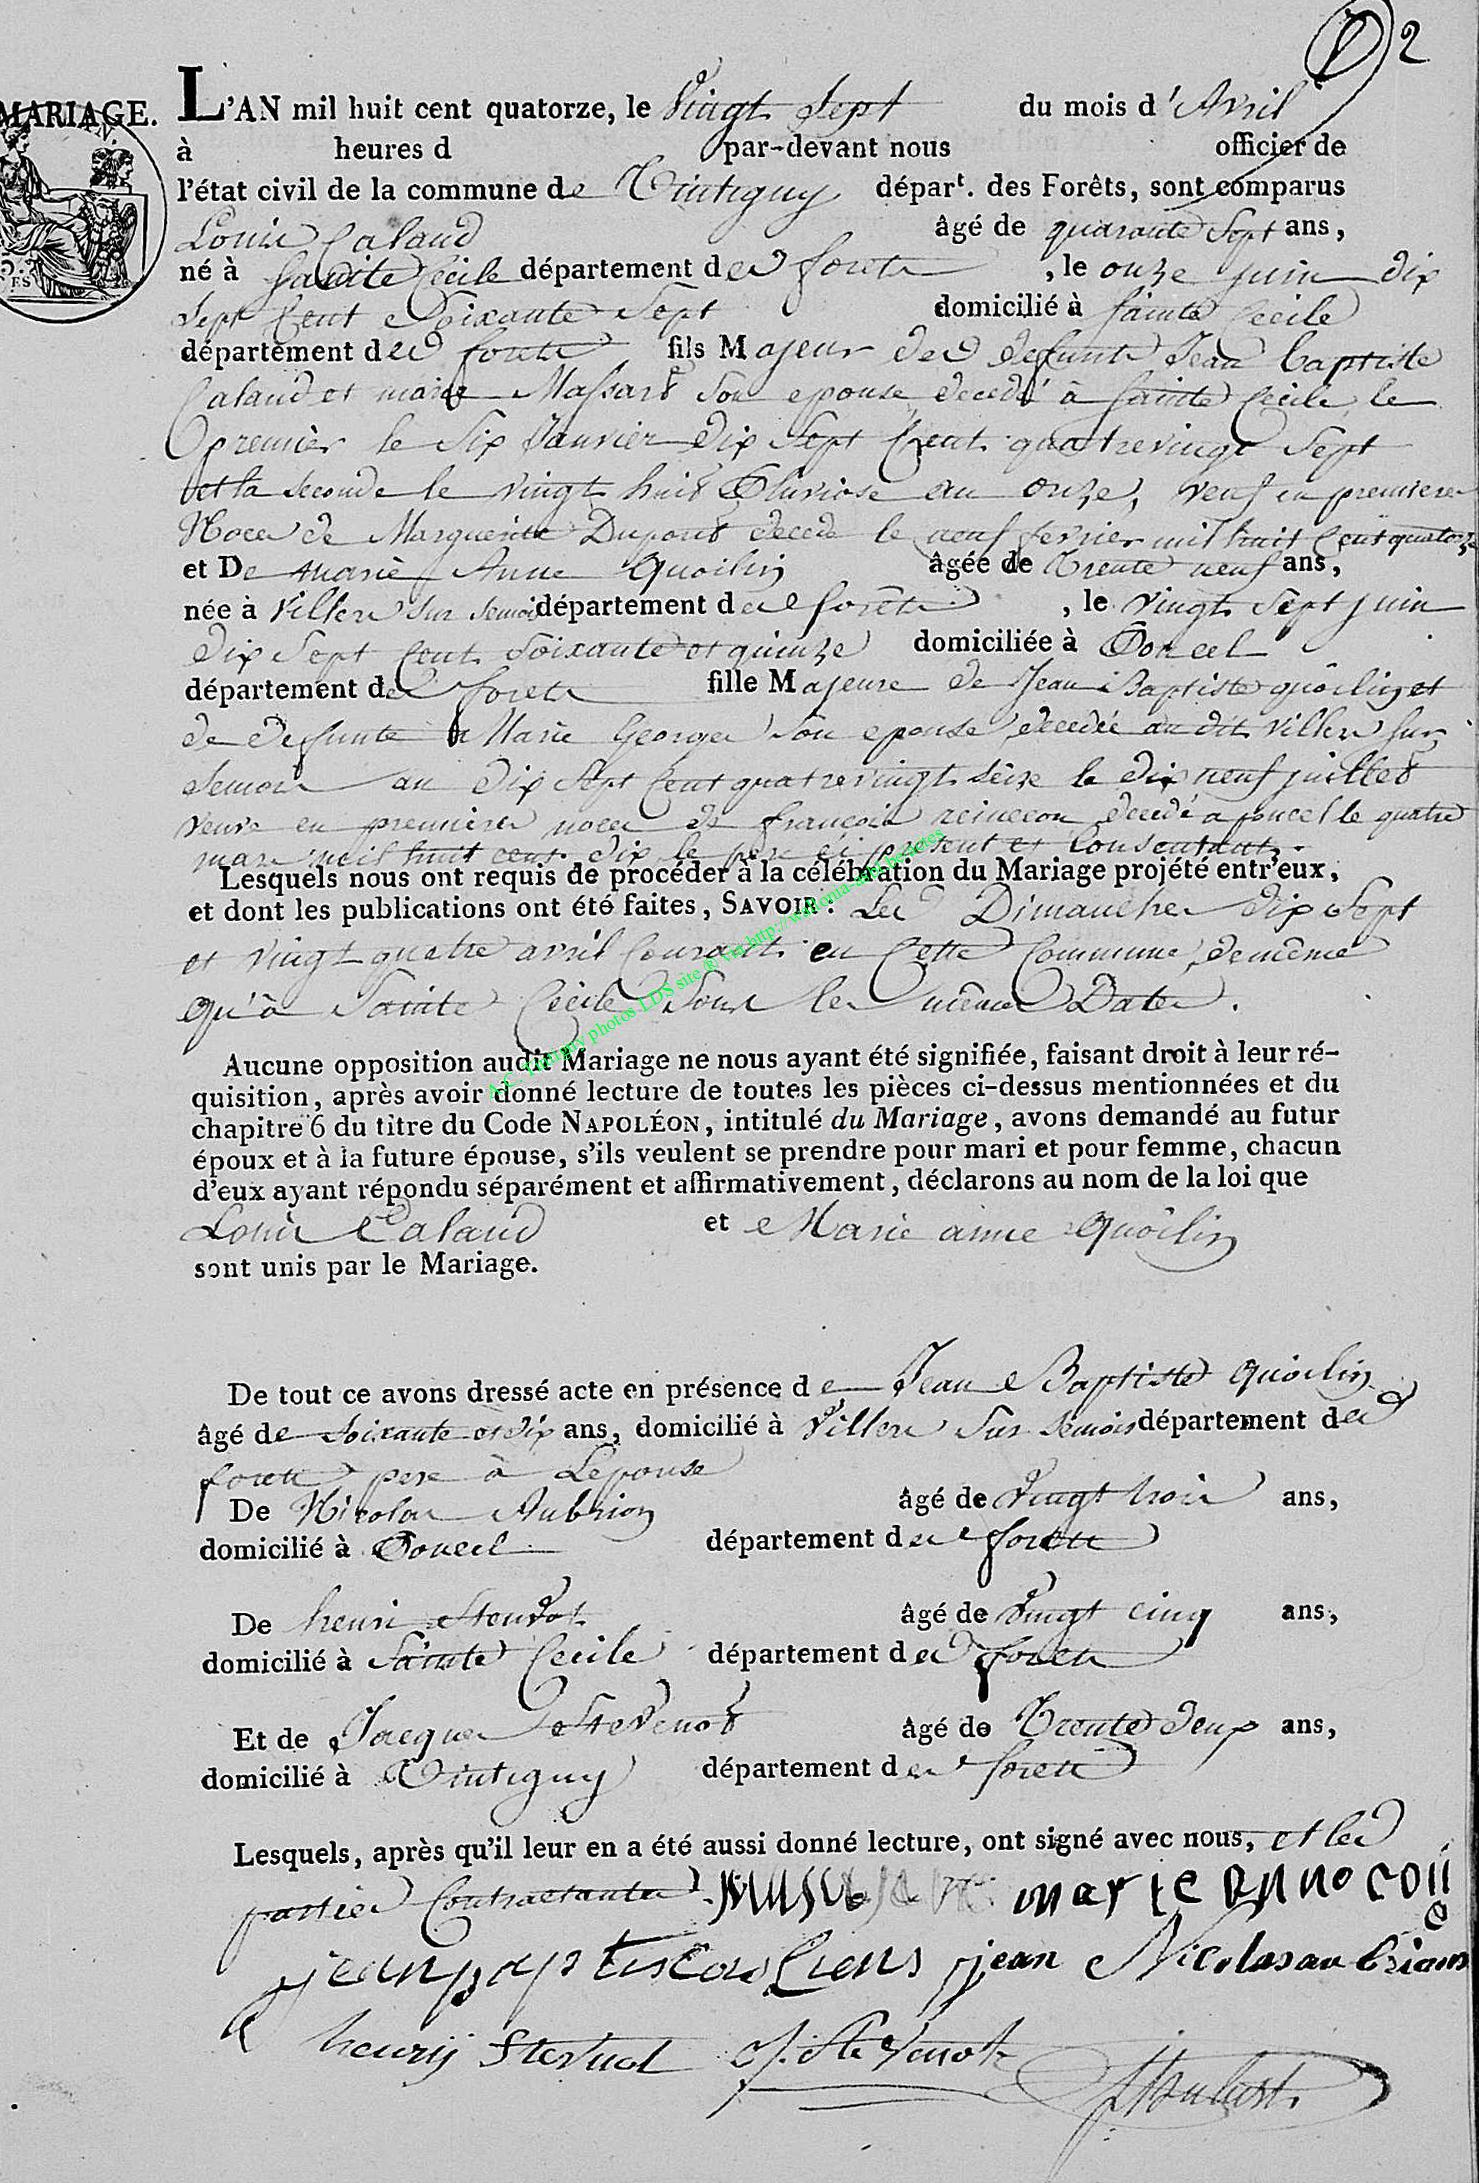 2
MARIAGE. L'AN mil huit cent quatorze, le Vingt Sept du mois d'Avril
à heures d par-devant nous officier de
l'état civil de la commune de Tintigny départ. des Forêts, sont comparus
Louis Calaud âgé de quarante Sept ans,
né à Sainte Cecile département des forets, le onze juin dix
Sept Cent Soixante Sept domicilié à Sainte Cecile
département des forets fils Majeur des defunts Jean Baptiste
Calaud et marie Massart Son epouse decedé à Sainte Cecile le
premier le Six Janvier dix Sept Cent quatrevingt Sept
et la seconde le vingt huit Pluviose an onze, veuf en premieres
Noces de Marguerite Dupont decede le neuf fevrier mil huit Cent quatorze
et De marie Anne Quoilin âgée de Trente neuf ans,
née à Villers Sur Semois département des forêts, le Vingt Sept juin
Dix Sept Cent Soixante et quinze domiciliée à Poncel
département des forets fille Majeure de Jean Baptiste quoilin et
de defunte Marie Georges Son epouse decedée au dit Villers Sur
Semois an dix Sept Cent quatrevingt seize le dix neuf juillet
veuve en premieres noces de françois decedé a poncel le quatre
mars mil huit cent dix le père ci présent et Consentant.
Lesquels nous ont requis de procéder à la célébration du Mariage projété entr'eux,
et dont les publications ont été faites, SAVOIR: Les Dimanches dix Sept
et vingt quatre avril Courant en Cette Commune, demême
qu'à Sainte Cecile Sous les mêmes Dates.
Aucune opposition audit Mariage ne nous ayant été signifiée, faisant droit à leur ré-
quisition, après avoir donné lecture de toutes les pièces ci-dessus mentionnées et du
chapitre 6 du titre du Code NAPOLÉON, intitulé du Mariage, avons demandé au futur
époux et à la future épouse, s'ils veulent se prendre pour mari et pour femme, chacun
d'eux ayant répondu séparément et affirmativement, déclarons au nom de la loi que
Louis Calaud et Marie anne Quoilin
sont unis par le Mariage.
De tout ce avons dressé acte en présence de Jean Baptiste Quoilin
âgé de Soixante et dix ans, domicilié à Villers Sur Semois département des
forets pere à Lepouse
De Nicolas Aubrion âgé de Vingt trois ans,
domicilié à Poncel département des forets
De henri Stevenot âgé de Vingt cinq ans,
domicilié à Sainte Cecile département des forets
Et de Jacques Stevenot âgé de Trente deux ans,
domicilié à Tintigny département des forets
Lesquels, après qu'il leur en a été aussi donné lecture, ont signé avec nous, et les
parties Contractantes. marie anno coli
jean Nicolas aubrion
henrij Stevnot J. Stevenot
A.C. Tintigny photos LDS site @ via http://wallonia-asbl.be/actes